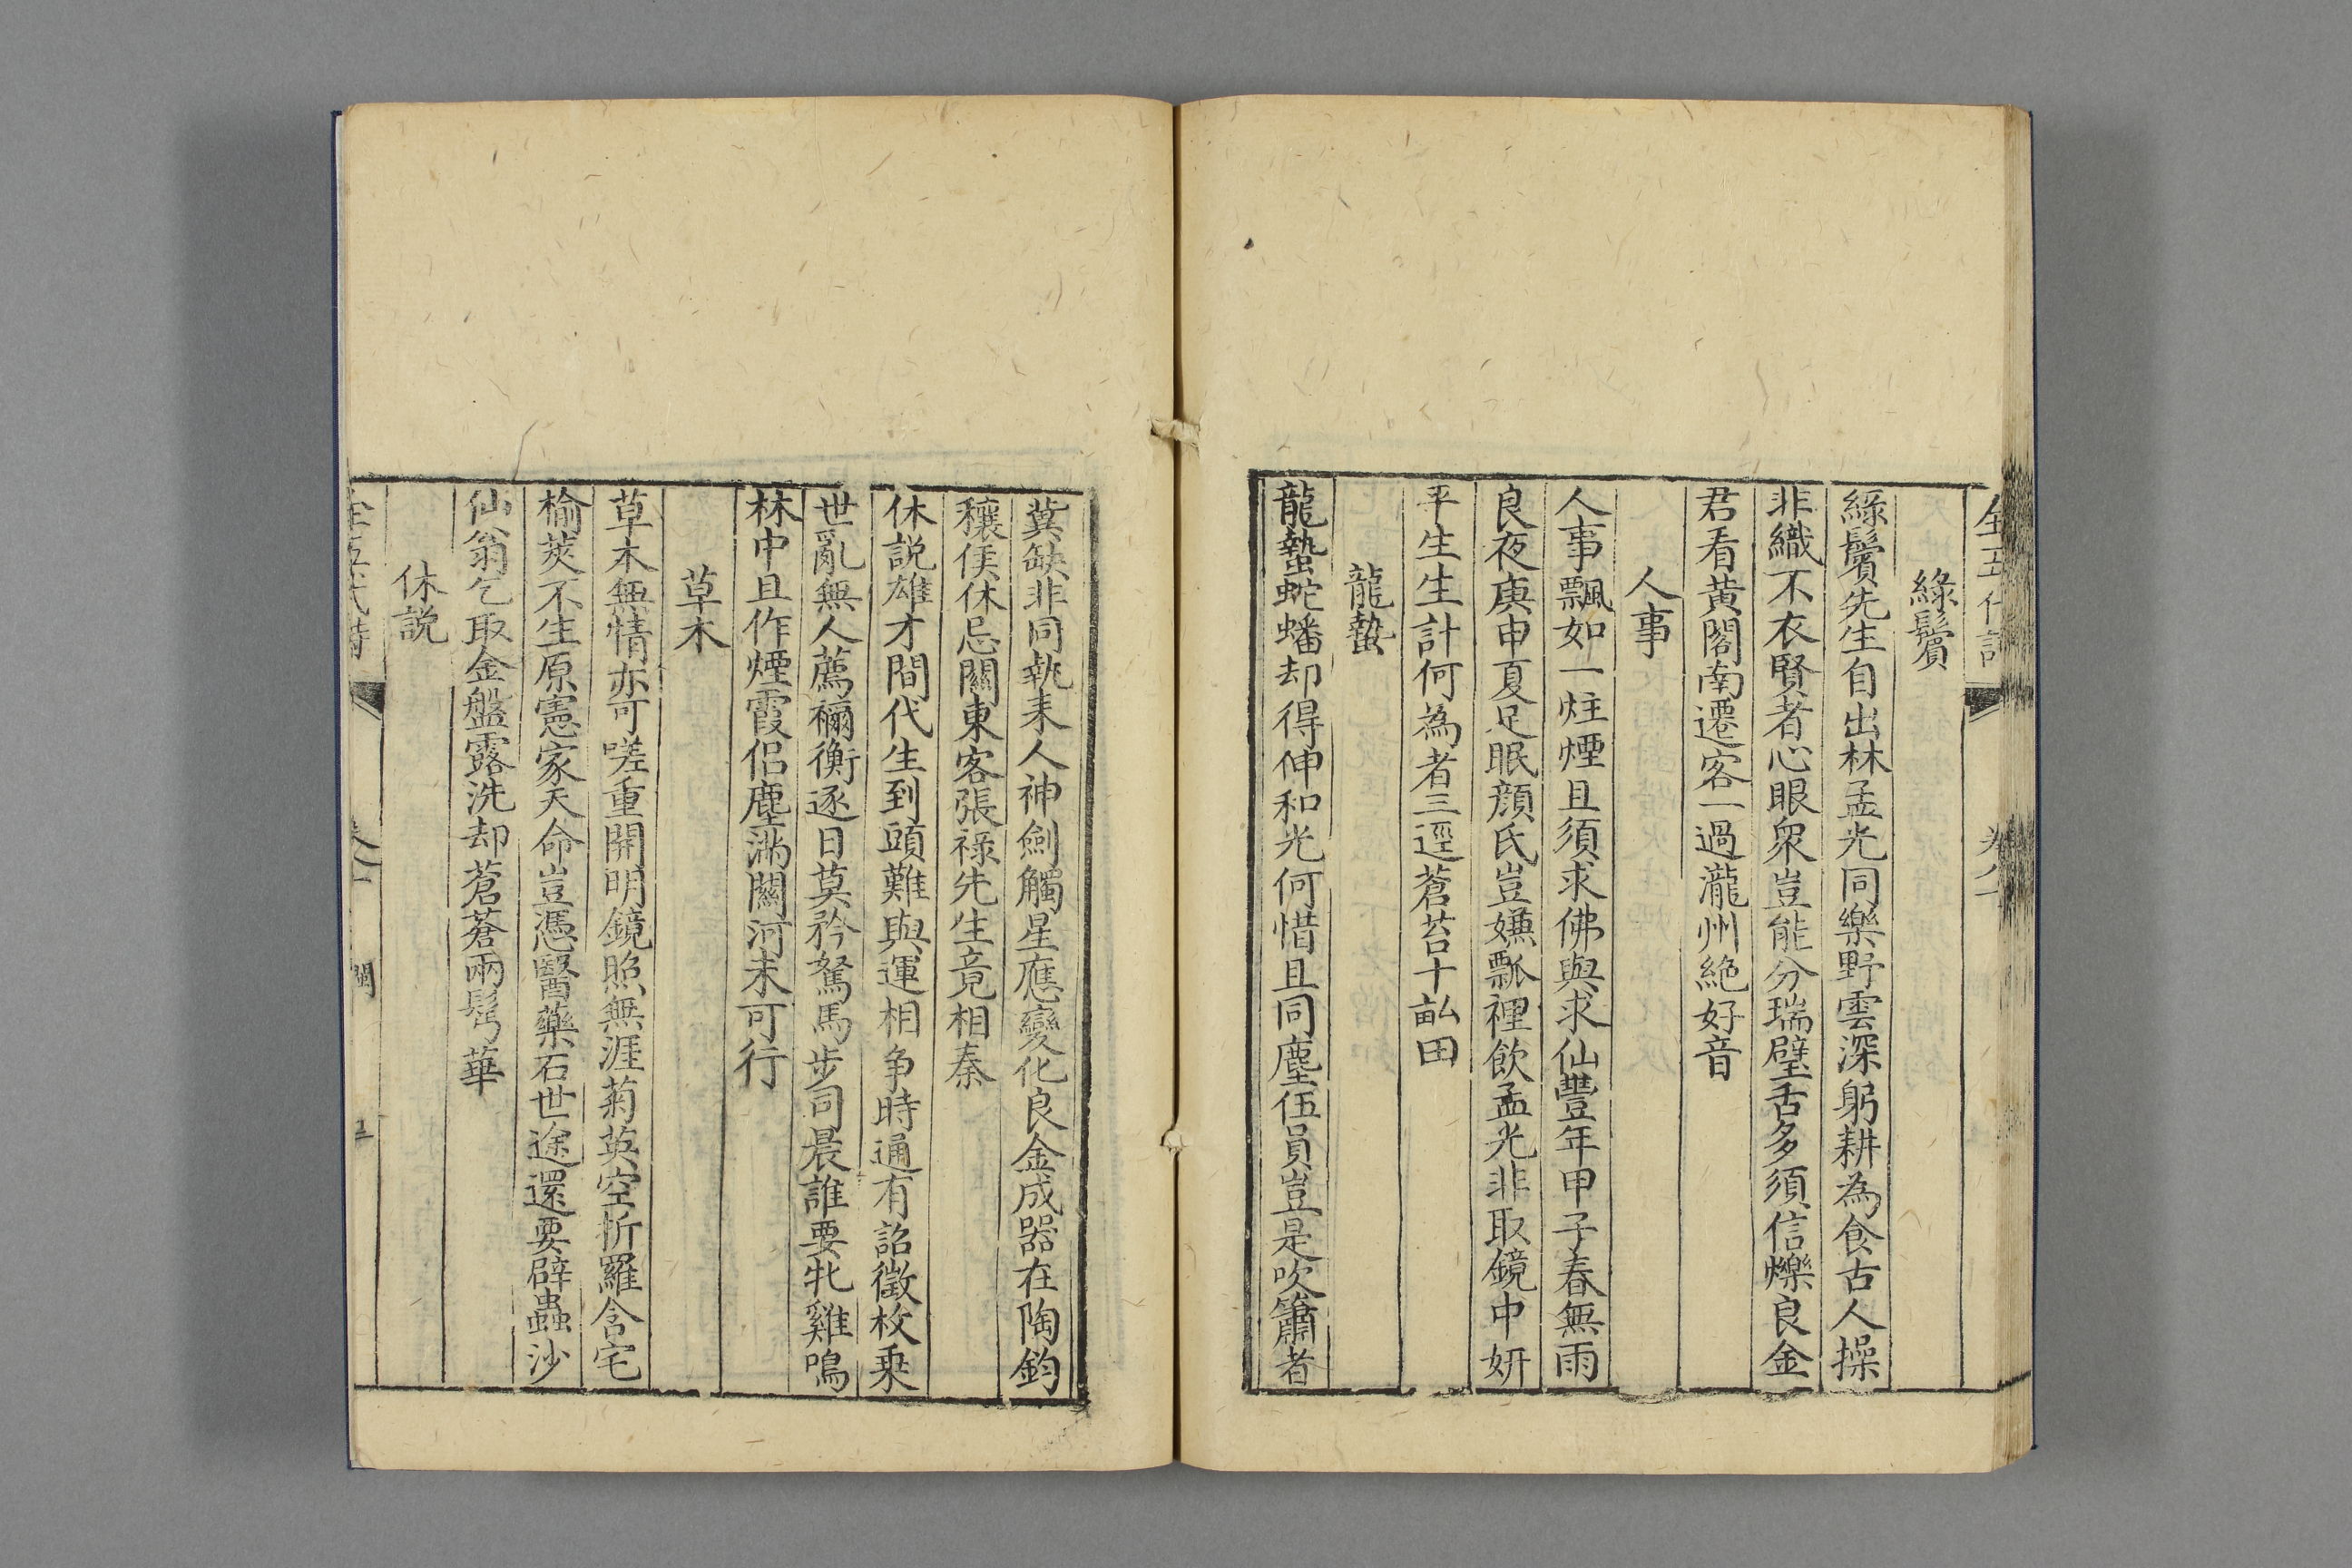 全五代詩
綠鬢
綠鬢先生自出林孟光同樂野雲深躬耕為食古人操
非織不衣賢者心眼衆豈能分瑞璧舌多須信爍良金
君看黃閣南遷客一過瀧州絶好音
人事
人事飄如一炷煙且須求佛與求仙豐年甲子春無雨
良夜庚申夏足眠顔氏豈嫌瓢裡飲孟光非取鏡中妍
平生生計何為者三逕蒼苔十畝田
龍蟄
龍蟄蛇蟠却得伸和光何惜且同塵伍員豈是吹簫者
冀缺非同執耒人神劍觸星應變化良金成器在陶鈞
穰侯休忌關東客張祿先生竟相秦
休説雄才間代生到頭難與運相争時通有詔徵枚乗
世亂無人薦禰衡逐日莫矜駑馬步司晨誰要牝雞鳴
林中且作煙霞侣塵滿關河未可行
草木
草木無情亦可嗟重開明鏡照無涯菊英空折羅含宅
榆莢不生原憲家天命豈憑醫藥石世途還要辟蟲沙
仙翁乞取金盤露洗却蒼蒼兩鬂華
休説
全五代詩
閩